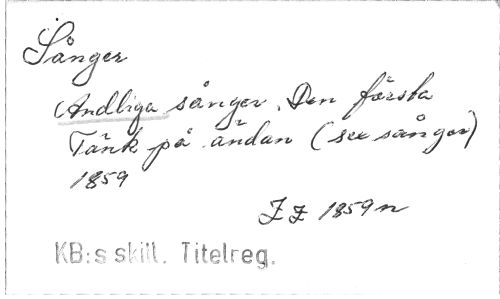 Sånger
Andliga sånger. Den första
Tänk på ändan (sex sånger)
1859
ZZ 1859 n
KB:s skill. Titelreg.